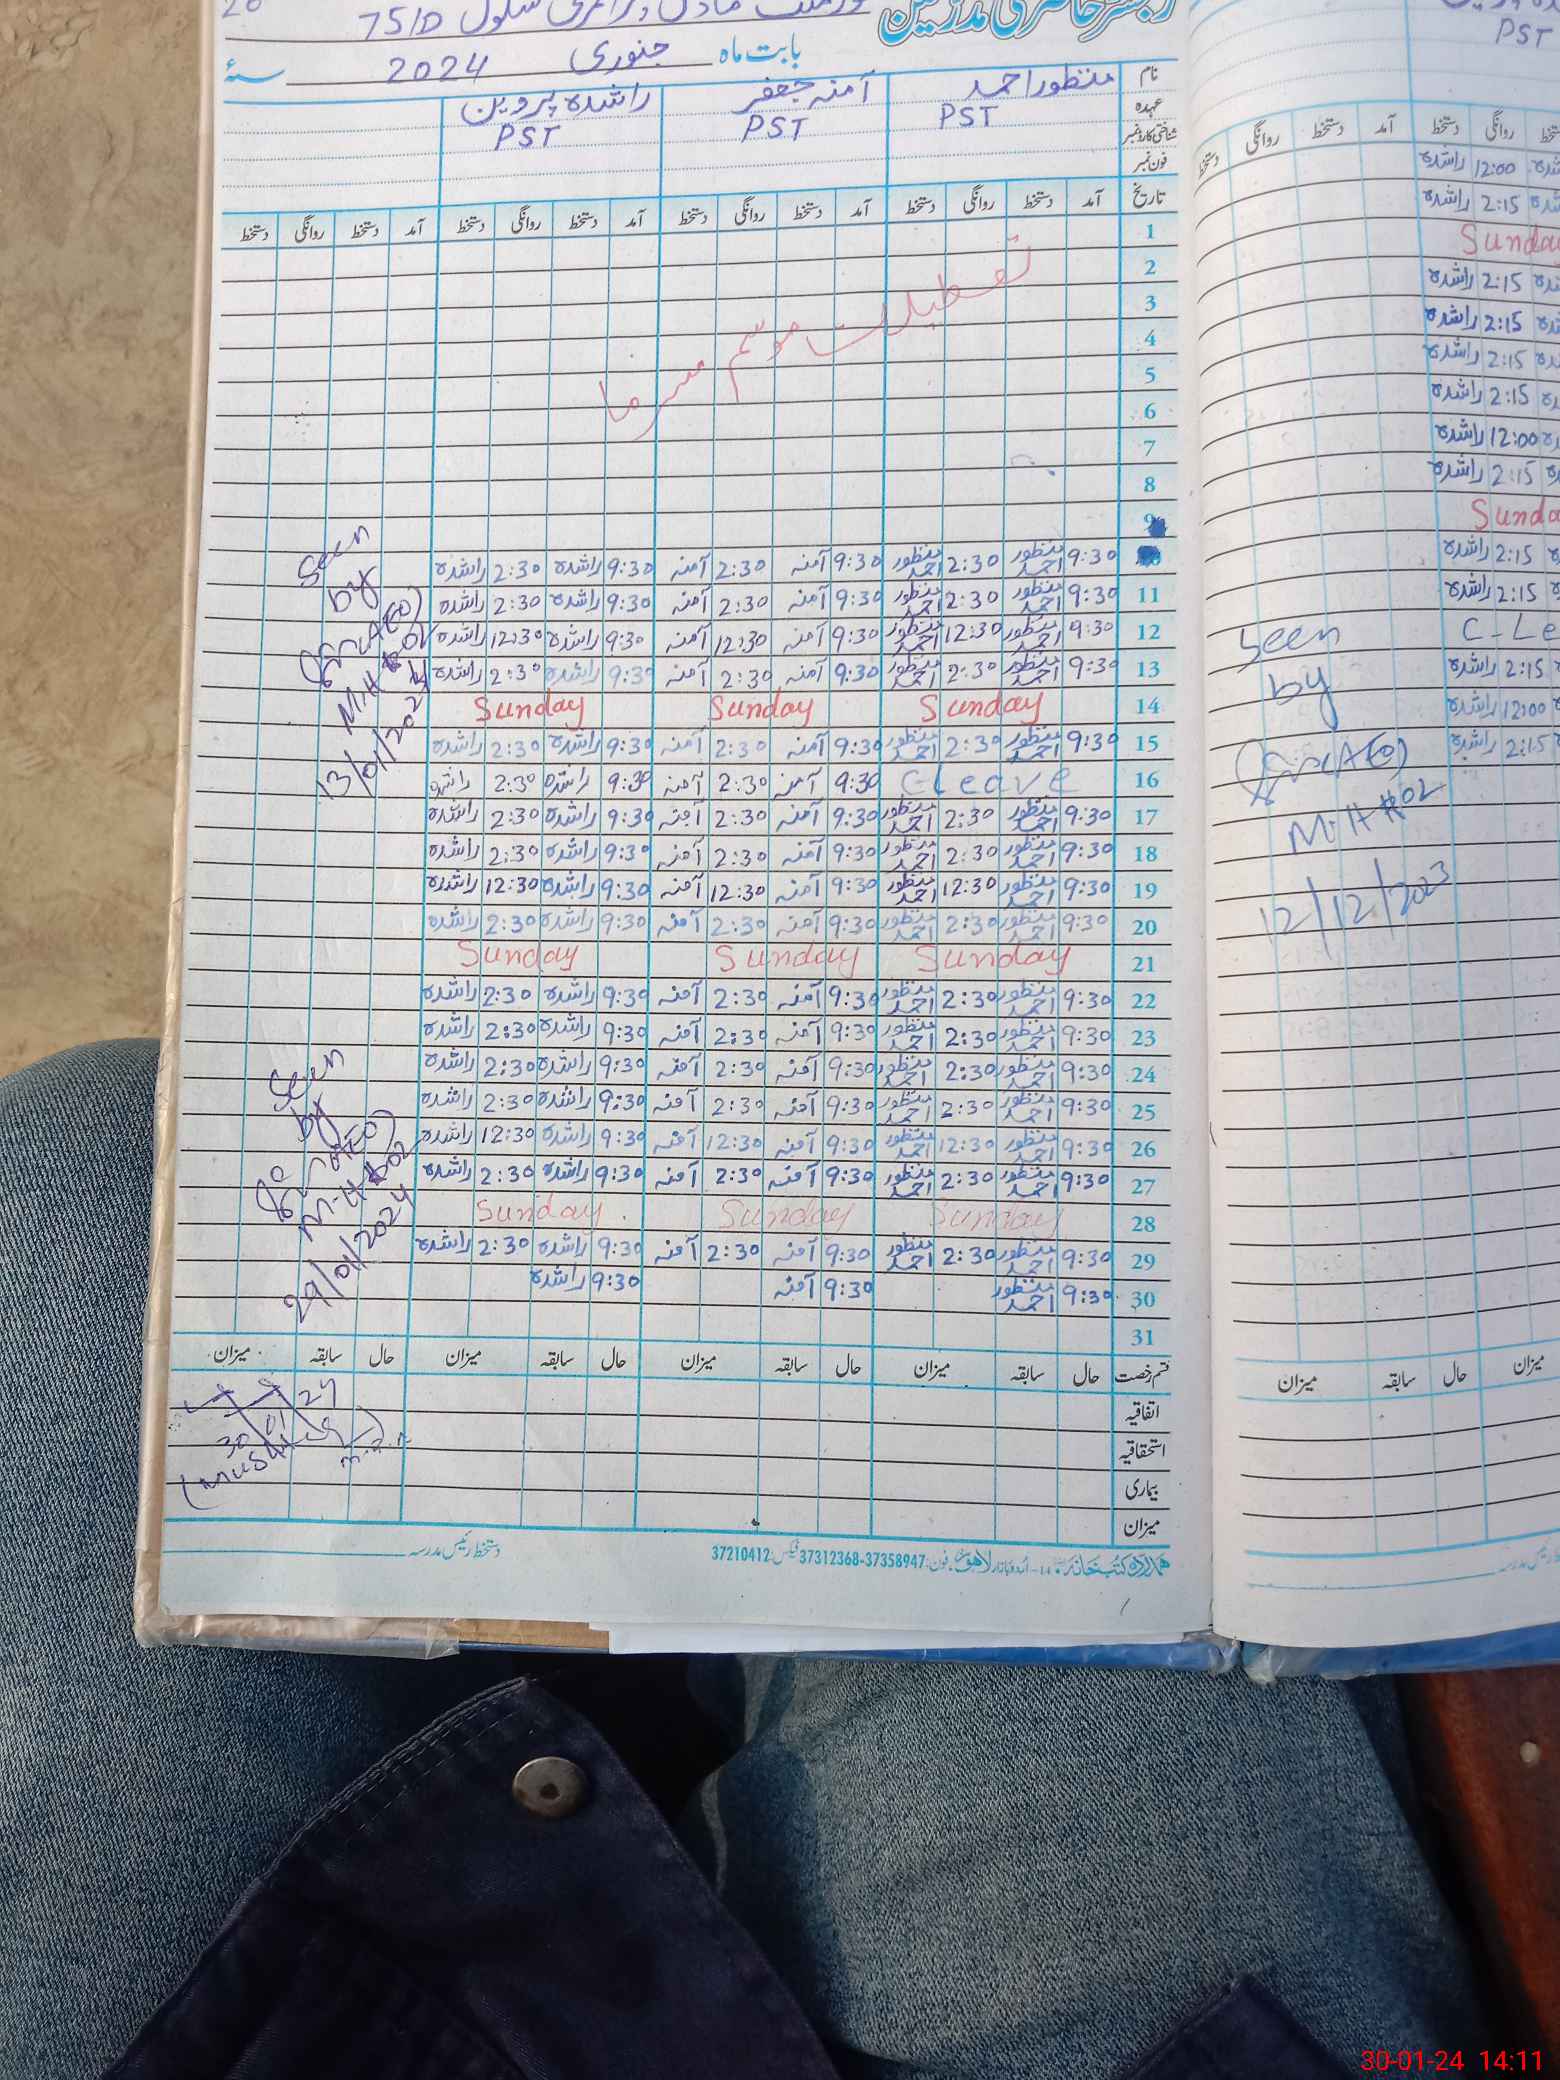 رجسٹر حاضری مدرسین
گورنمنٹ ماڈل پرائمری سکول 75/D
بابت ماہ جنوری 2024 سنۂ
نام منظور احمد آمنہ جعفر راشدہ پروین
عہدہ PST PST PST
شناختی کارڈ نمبر
فون نمبر
تاریخ آمد دستخط روانگی دستخط آمد دستخط روانگی دستخط آمد دستخط روانگی دستخط آمد دستخط روانگی دستخط
1
2
3
4
5
6
7
8
9
تعطیلات موسم سرما
9:30 منظور احمد 2:30 منظور احمد 9:30 آمنہ 2:30 آمنہ 9:30 راشدہ 2:30 راشدہ
11 9:30 منظور احمد 2:30 منظور احمد 9:30 آمنہ 2:30 آمنہ 9:30 راشدہ 2:30 راشدہ
12 9:30 منظور احمد 12:30 منظور احمد 9:30 آمنہ 12:30 آمنہ 9:30 راشدہ 12:30 راشدہ
13 9:30 منظور احمد 2:30 منظور احمد 9:30 آمنہ 2:30 آمنہ 9:30 راشدہ 2:30 راشدہ
14 Sunday Sunday Sunday
15 9:30 منظور احمد 2:30 منظور احمد 9:30 آمنہ 2:30 آمنہ 9:30 راشدہ 2:30 راشدہ
16 C Leave 9:30 آمنہ 2:30 آمنہ 9:30 راشدہ 2:30 راشدہ
17 9:30 منظور احمد 2:30 منظور احمد 9:30 آمنہ 2:30 آمنہ 9:30 راشدہ 2:30 راشدہ
18 9:30 منظور احمد 2:30 منظور احمد 9:30 آمنہ 2:30 آمنہ 9:30 راشدہ 2:30 راشدہ
19 9:30 منظور احمد 12:30 منظور احمد 9:30 آمنہ 12:30 آمنہ 9:30 راشدہ 12:30 راشدہ
20 9:30 منظور احمد 2:30 منظور احمد 9:30 آمنہ 2:30 آمنہ 9:30 راشدہ 2:30 راشدہ
21 Sunday Sunday Sunday
22 9:30 منظور احمد 2:30 منظور احمد 9:30 آمنہ 2:30 آمنہ 9:30 راشدہ 2:30 راشدہ
23 9:30 منظور احمد 2:30 منظور احمد 9:30 آمنہ 2:30 آمنہ 9:30 راشدہ 2:30 راشدہ
24 9:30 منظور احمد 2:30 منظور احمد 9:30 آمنہ 2:30 آمنہ 9:30 راشدہ 2:30 راشدہ
25 9:30 منظور احمد 2:30 منظور احمد 9:30 آمنہ 2:30 آمنہ 9:30 راشدہ 2:30 راشدہ
26 9:30 منظور احمد 12:30 منظور احمد 9:30 آمنہ 12:30 آمنہ 9:30 راشدہ 12:30 راشدہ
27 9:30 منظور احمد 2:30 منظور احمد 9:30 آمنہ 2:30 آمنہ 9:30 راشدہ 2:30 راشدہ
28 Sunday Sunday Sunday
29 9:30 منظور احمد 2:30 منظور احمد 9:30 آمنہ 2:30 آمنہ 9:30 راشدہ 2:30 راشدہ
30 9:30 منظور احمد 9:30 آمنہ 9:30 راشدہ
31
Seen
by
(AEO)
M-H#02
13/01/2024
Seen
by
(AEO)
M-H#02
29/01/2024
قسم رخصت حال سابقہ میزان حال سابقہ میزان حال سابقہ میزان حال سابقہ میزان
اتفاقیہ
استحقاقیہ
بیماری
میزان
30 01 24
دستخط رئیس مدرسہ
ہمدرد کتب خانہ 14-اردو بازار لاہور فون:37358947-37312368 فیکس:37210412
PST
آمد دستخط روانگی دستخط
دستخط روانگی دستخط
12:00 راشدہ
2:15 راشدہ
Sunday
2:15 راشدہ
2:15 راشدہ
2:15 راشدہ
2:15 راشدہ
12:00 راشدہ
2:15 راشدہ
Sunda
2:15 راشدہ
2:15 راشدہ
C-Le
2:15 راشدہ
12:00 راشدہ
2:15 راشدہ
Seen
by
(AEO)
M-H#02
12/12/2023
میزان حال سابقہ میزان
رئیس مدرسہ
30-01-24 14:11